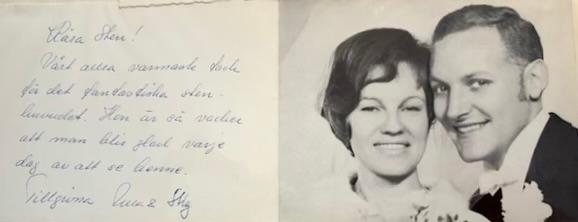 Kära Sten!
Vårt allra varmaste tack
för det fantastiska sten-
huvudet. Hon är så vacker
att man blir glad varje
dag av att se henne.
Tillgivna & Stig